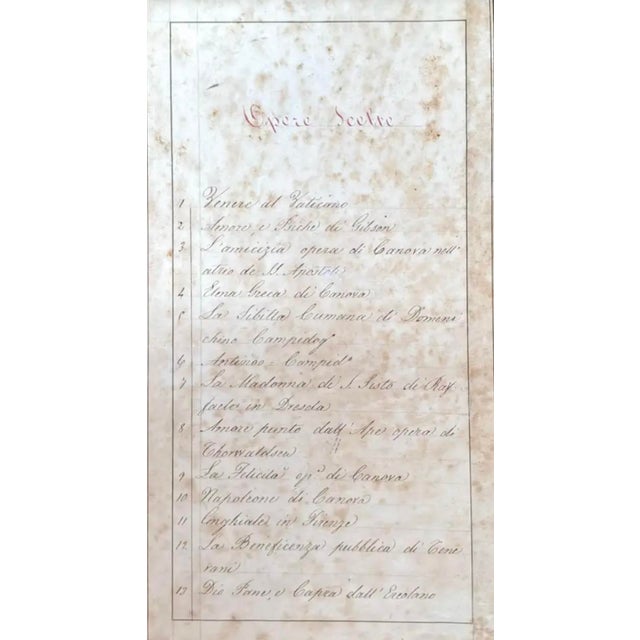 Opere Scelte
1 Venere al Vaticano
2 Amore, e Psiche di Gibson
3 L'amicizia opera di Canova nell'
atrio de SS. Apostoli
4 Elena Greca di Canova
5 La Sibilla Cumana di Domeni
chino Campidogº
6 Antinoo = Campidº
7 La Madonna di S. Sisto di Raf
faele in Dresda
8 Amore punto dall' Ape opera di
Thorwaldsen
9 La Felicità opª di Canova
10 Napoleone di Canova
11 Cinghiale in Firenze
12 La Beneficenza pubblica di Tene
rani
13 Dio Pane, e Capra dall' Ercolano